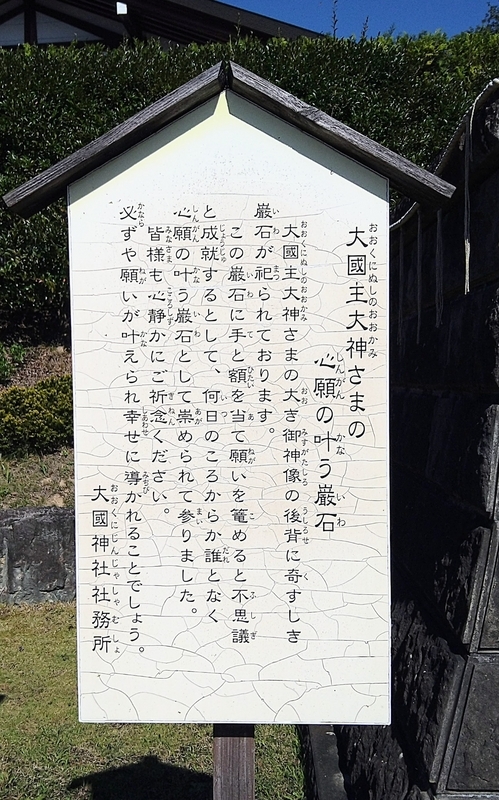 大國主大神さまの
心願の叶う巌石
大國主大神さまの大き御神像の後背に奇すしき
巌石が祀られております。
この巌石に手と額を当て願いを篭めると不思議
と成就するとして、何日のころからか誰となく
心願の叶う巌石として崇められて参りました。
皆様も心静かにご祈念ください。
必ずや願いが叶えられ幸せに導かれることでしょう。
大國神社社務所